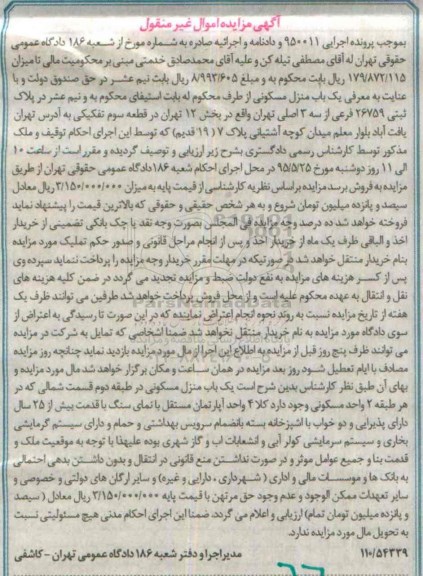 آگهی مزایده اموال غیر منقول
بموجب پرونده اجرایی ۹۵۰۰۱۱ و دادنامه و اجرائیه صادره به شماره مورخ از شعبه ۱۸۶ دادگاه عمومی
حقوقی تهران له آقای مصطفی تیله کن و علیه آقای محمدصادق خدمتی مبنی بر محکومیت مالی تا میزان
۱۷۹/۸۷۲/۱۱۵ ریال بابت محکوم به و مبلغ ۸/۹۹۳/۶۰۵ ریال بابت نیم عشر در حق صندوق دولت و با
عنایت به معرفی یک باب منزل مسکونی از طرف محکوم له بابت استیفای محکوم به و نیم عشر در پلاک
ثبتی ۲۶۷۵۹ فرعی از سه ۳ اصلی تهران واقع در بخش ۱۲ تهران در قطعه سوم تفکیکی به آدرس تهران
یافت آباد بلوار معلم میدان کوچه آشتیانی پلاک ۷ (۱۹ قدیم) که توسط این اجرای احکام توقیف و ملک
مذکور توسط کارشناس رسمی دادگستری بشرح زیر ارزیابی و توصیف گردیده و مقرر است از ساعت ۱۰
الی ۱۱ روز دوشنبه مورخ ۹۵/۵/۲۵ در محل اجرای احکام شعبه ۱۸۶ دادگاه عمومی حقوقی تهران از طریق
مزایده به فروش برسد مزایده براساس نظریه کارشناسی از قیمت پایه به میزان ۳/۱۵۰/۰۰۰/۰۰۰ ریال معادل
سیصد و پانزده میلیون تومان شروع و به هر شخص حقیقی و حقوقی که بالاترین قیمت را پیشنهاد نماید
فروخته خواهد شد ده درصد وجه مزایده فی المجلس بصورت وجه نقد یا چک بانکی تضمینی از خریدار
اخذ و الباقی ظرف یک ماه از خریدار اخذ و پس از انجام مراحل قانونی و صدور حکم تملیک مورد مزایده
بنام خریدار منتقل خواهد شد در صورتیکه در مهلت مقرر خریدار وجه مزایده را پرداخت ننماید سپرده وی
پس از کسر هزینه های مزایده به نفع دولت ضبط و مزایده تجدید می گردد در ضمن کلیه هزینه های
نقل و انتقال به عهده محکوم علیه است و از محل فروش پرداخت خواهد شد طرفین می توانند ظرف یک
هفته از تاریخ مزایده نسبت به روند نحوه انجام اعتراض نماینده که در این صورت تا رسیدگی به اعتراض از
سوی دادگاه مورد مزایده به نام خریدار منتقل نخواهد شد ضمنا اشخاصی که تمایل به شرکت در مزایده
می توانند ظرف پنج روز قبل از مزایده به اطلاع این اجرا از مال مورد مزایده بازدید نماید چنانچه روز مزایده
مصادف با ایام تعطیل شود روز بعد مزایده در همان ساعت و مکان برگزار خواهد شد مال مورد مزایده و
بهای آن طبق نظر کارشناس بدین شرح است یک باب منزل مسکونی در طبقه دوم قسمت شمالی که در
هر طبقه ۲ واحد مسکونی وجود دارد کلا ۴ واحد آپارتمان مستقل با نمای سنگ با قدمت بیش از ۲۵ سال
دارای پذیرایی و دو خواب با آشپزخانه بسته بانضمام سرویس بهداشتی و حمام و دارای سیستم گرمایشی
بخاری و سیستم سرمایشی کولر آبی و انشعابات آب و گاز شهری بوده علیهذا با توجه به موقعیت ملک و
قدمت بنا و جمیع عوامل موثر و در صورت نداشتن منع قانونی در انتقال و بدون داشتن بدهی احتمالی
به بانک ها و موسسات مالی و اداری (شهرداری ، دارایی و غیره) و سایر ارگان های دولتی و خصوصی و
سایر تعهدات ممکن الوجود و عدم وجود حق مرتهن با قیمت پایه ۳/۱۵۰/۰۰۰/۰۰۰ ریال معادل (سیصد
و پانزده میلیون تومان تمام) ارزیابی و اعلام می گردد. ضمنا این اجرای احکام مدنی هیچ مسئولیتی نسبت
به تحویل مال مورد مزایده ندارد.
۱۱۰/۵۴۳۳۹ مدیر اجرا و دفتر شعبه ۱۸۶ دادگاه عمومی تهران - کاشفی